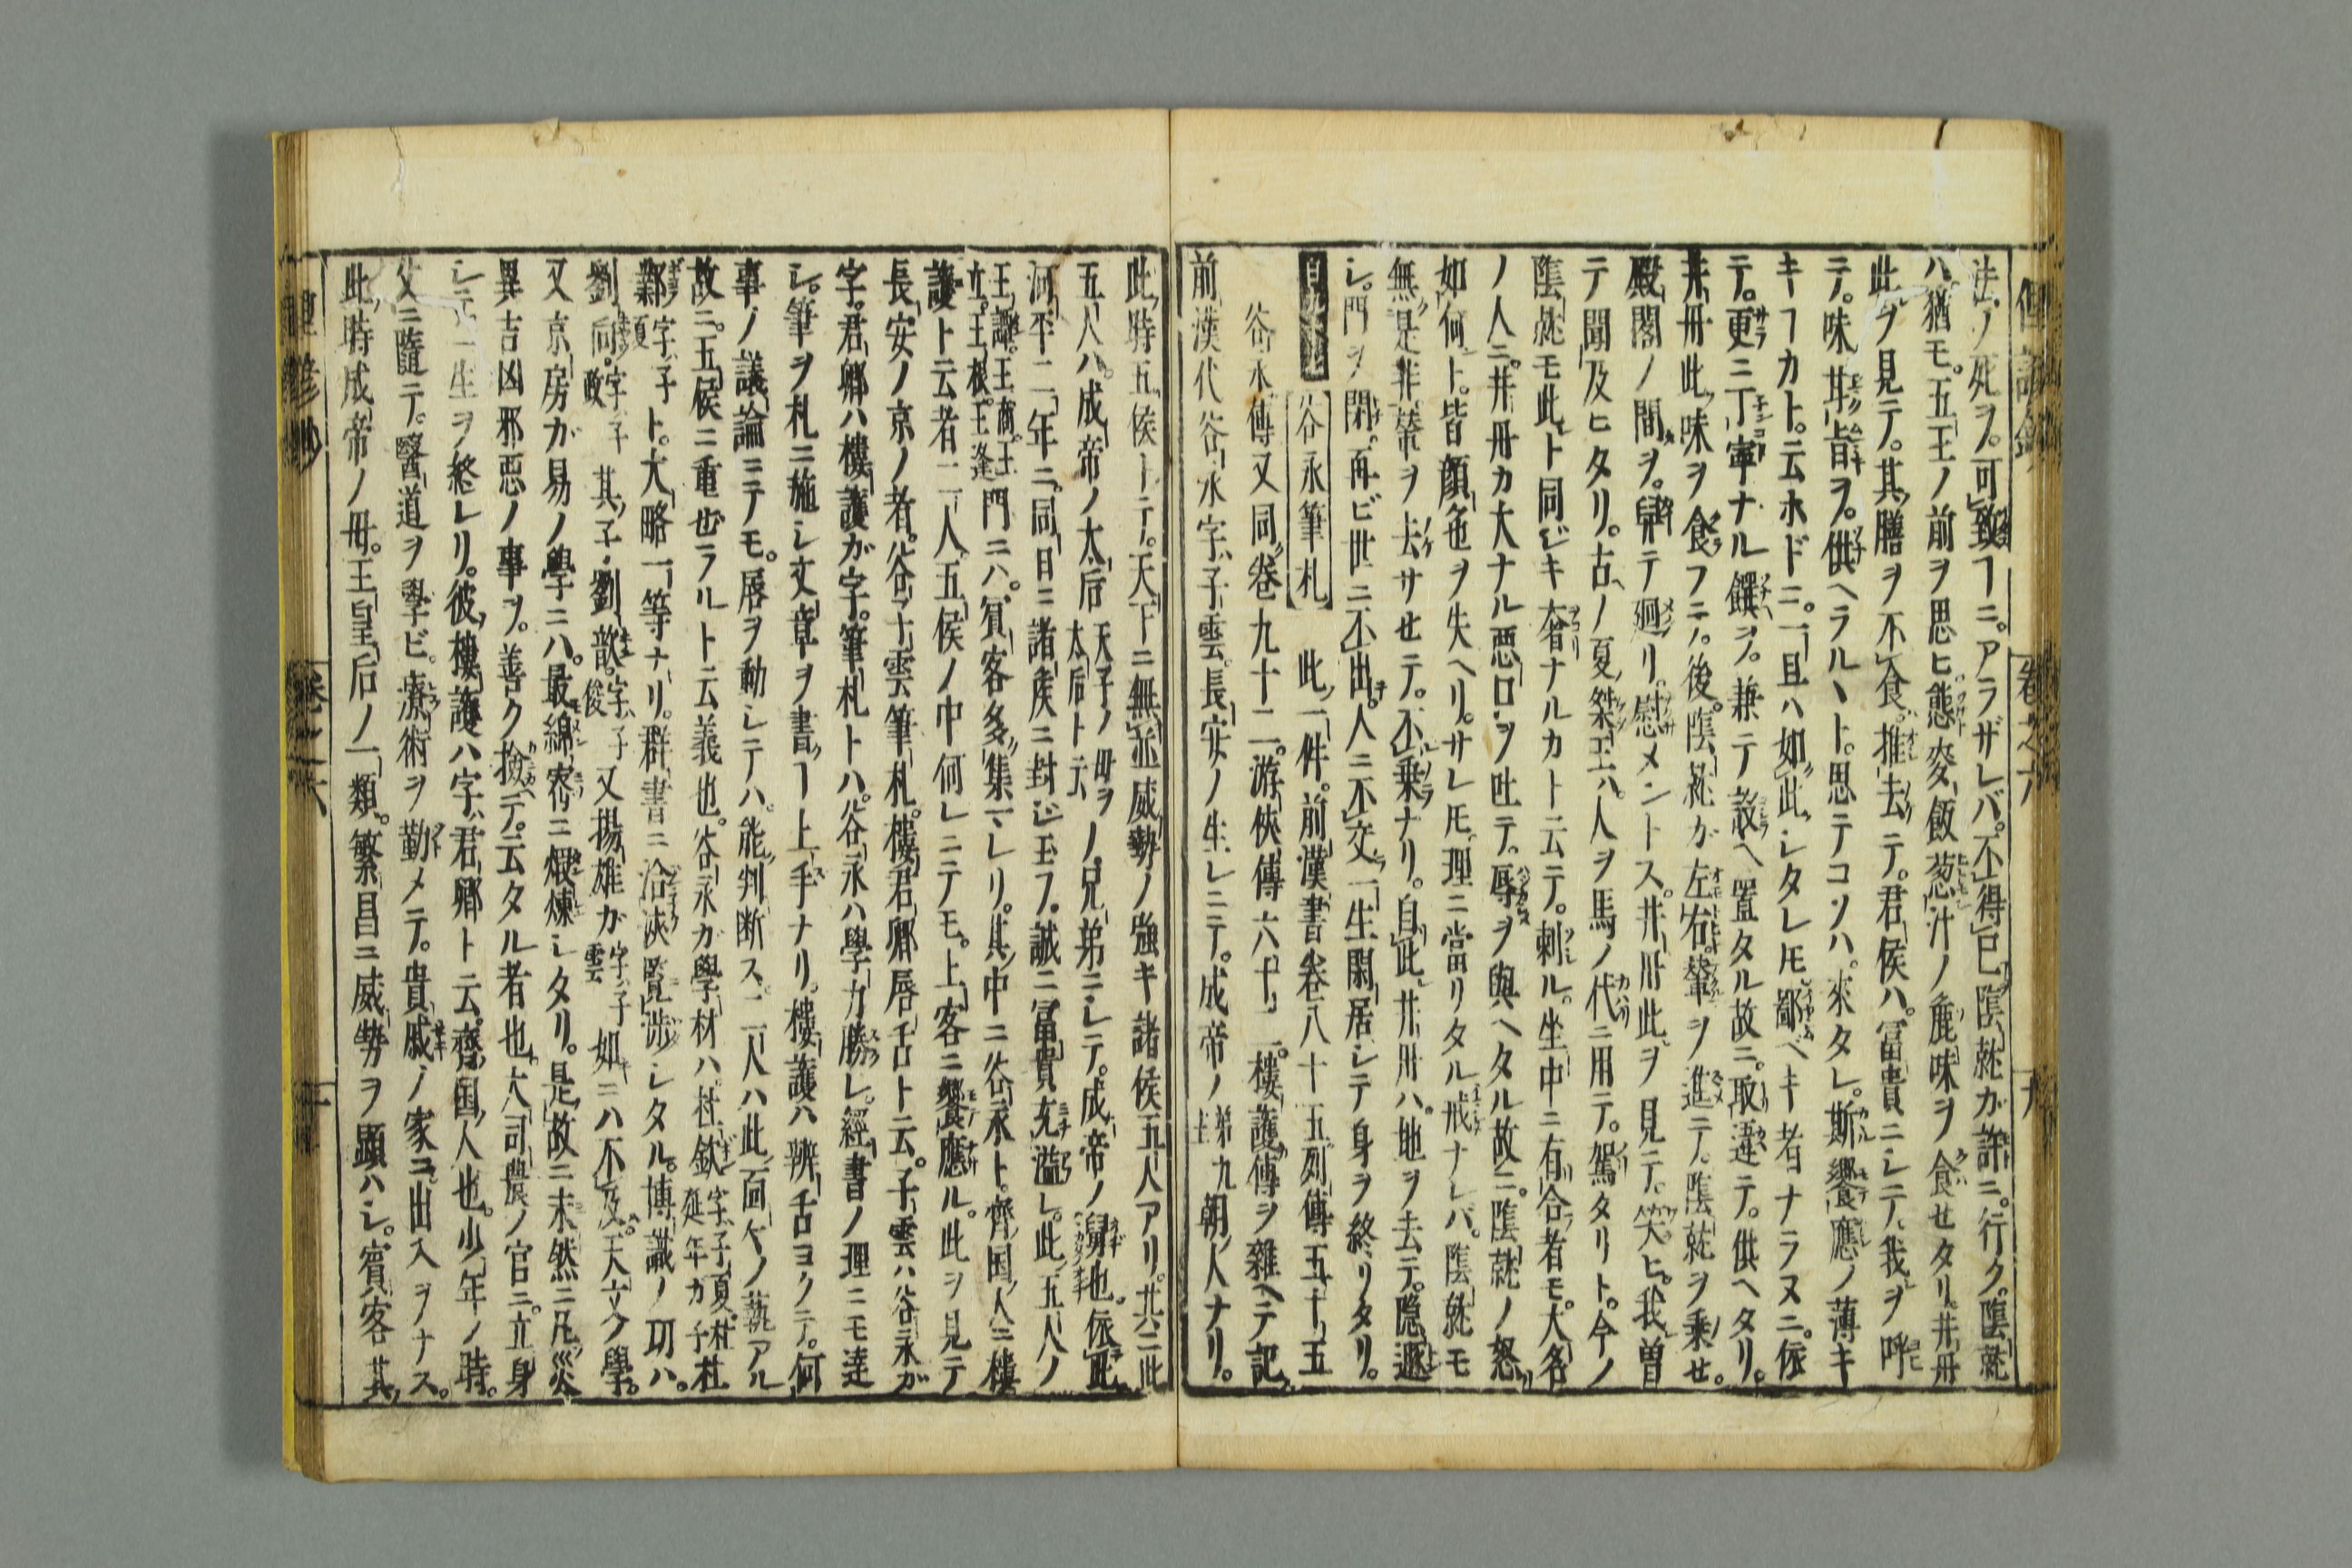 法ノ死ヲ。可致ヿニ。アラザレバ。不得已陰就ガ許ニ。行ク。陰就
ハ。猶モ。五王ノ前ヲ思ヒ態麥飯葱汁ノ麁味ヲ食セタリ。井丹
此ヲ見テ。其膳ヲ不食。推去ニテ。君侯ハ。冨貴ニシテ。我ヲ呼
テ。味其旨ヲ。供ヘラルヽト。思テコソハ。來タレ。斯饗應ノ薄キ
キヿカト。云ホドニ。一旦ハ如此シタレ𪜈鄙ベキ者ナラヌニ。依
テ。更ニ丁寧ナル饌ヲ。兼テ設ヘ置タル故ニ。取違テ。供ヘタリ。
井丹此味ヲ食フニ。後。陰就ガ左右。輦ヲ進ニテ。陰就ヲ乗セ。
殿閣ノ間ヲ。舁テ廻リ。慰メントス。井丹此ヲ見テ。笑ヒ。我曽
テ聞及ヒタリ。古ノ夏桀王ハ。人ヲ馬ノ代ニ用テ。駕タリト。今ノ
陰就モ此ト同ジキ奢ナルカト云テ。刺ル。坐中ニ有合者モ。大名
ノ人ニ。井丹カ大ナル悪口ヲ吐テ。辱ヲ與ヘタル故ニ。陰就ノ怒
如何ト。皆顔色ヲ失ヘリ。サレ𪜈。理ニ當リタル戒ナレバ。陰就モ
無是非輦ヲ去サセテ。不乗ナリ。自此井丹ハ。地ヲ去テ。隠遯
シ。門ヲ閉。再ビ世ニ不出。人ニ不交一生閑居シテ身ヲ終リタリ。
谷永筆札　此一件。前漢書卷八十五列傳五十五
谷永傳又同卷九十二。游俠傳六十二。樓護傳ヲ雜ヘテ記
前漢代谷永字ハ子雲。長安ノ生レニテ。成帝ノ第九主朝人ナリ。
此時五侯トテ。天下ニ無並威勢ノ強キ諸侯五人アリ。共ニ此
五人ハ。成帝ノ太后天子ノ母ヲ太后ト云ノ兄弟ニシテ。成帝ノ舅也。依此
河平二年ニ。同日ニ諸侯ニ封ジ玉フ。誠ニ冨貴充溢シ。此五人ノ
王譚。王商。王立。王根。王逢門ニハ。賓客多集マレリ。其中ニ谷永ト。齊国人ニ樓
護ト云者二人。五侯ノ中何レニテモ。上客ニ饗應ル。此ヲ見テ
長安ノ京ノ者。谷子雲筆札。樓君卿唇舌ト云。子雲ハ谷永ガ
字。君卿ハ樓護ガ字。筆札トハ。谷永ハ學力勝レ。經書ノ理ニモ達
シ。筆ヲ札ニ施シ文章ヲ書ヿ上手ナリ。樓護ハ辨舌ヨクテ。何
事ノ議論ニテモ。唇ヲ動シテハ。能判断ス。二人ハ此両ケノ藝アル
故ニ。五侯ニ重也ラルト云義也。谷永ガ學材ハ。杜欽字ハ子夏。杜延年カ子杜
鄴字ハ子夏ト。大略一等ナリ。群書ニ洽浹覽渉シタル。博識ノ功ハ。
劉向。字ハ子政其子・劉歆。字ハ子俊又揚雄ガ字ハ子雲如ニハ不及。天文ク學。
又京房ガ易ノ學ニハ。最綿密ニ煅煉シタリ。是故ニ未然ニ凡災
異吉凶邪悪ノ事ヲ。善ク撿テ。云タル者也。大司農ノ官ニ。立身
シテ一生ヲ終レリ。彼樓護ハ字ハ君卿ト云。齊国人也。少年ノ時。
父ニ隨テ。醫道ヲ學ビ。療術ヲ勤メテ。貴戚ノ家ニ出入ヲナス。
此時成帝ノ母。王皇后ノ一類。繁昌ニ威勢ヲ顯ハシ。賓客其
卷之六
卷之六